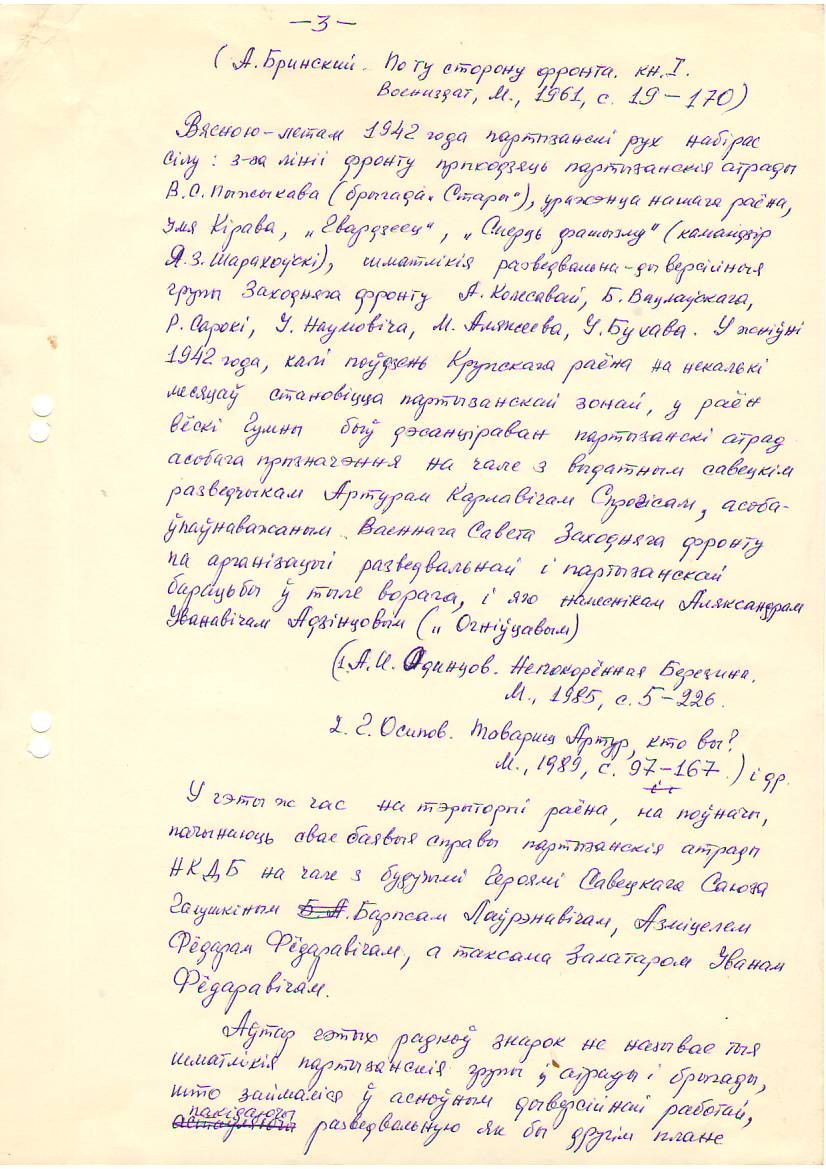 — 3 —
(А. Бринский. По ту сторону фронта. кн. I.
Воениздат, М., 1961, с. 19 – 170)
Вясною-летам 1942 года партызанскі рух набірае
сілу: з-за лініі фронту прыходзяць партызанскія атрады
В.С. Пыжыкава (брыгада „Стары“), уражэнца нашага раёна,
імя Кірава, „Гвардзеец“, „Смерць фашызму“ (камандзір
Я.З. Шарахоўскі), шматлікія разведвальна-дыверсійныя
групы Заходняга фронту А. Колесавай, Б. Вацлаўскага,
Р. Сарокі, У. Навумовіча, М. Аляксеева, У. Бухава. У жніўні
1942 года, калі поўдзень Крупскага раёна на некалькі
месяцаў становіцца партызанскай зонай, у раён
вёскі Гумны быў дэсанціраван партызанскі атрад
асобага прызначэння на чале з выдатным савецкім
разведчыкам Артурам Карлавічам Спрогісам, асоба-
ўпаўнаважаным Ваеннага Савета Заходняга фронту
па арганізацыі разведвальнай і партызанскай
барацьбы ў тыле ворага, і яго намеснікам Аляксандрам
Іванавічам Адзінцовым („Огніўцавым)
(1. А.И. Одинцов. Непокорённая Березина.
М., 1985, с. 5 – 226.
2. Г. Осипов. Товарищ Артур, кто вы?
М., 1989, с. 97 – 167.) і др.
У гэты ж час на тэрыторыі раёна, на поўначы,
пачынаюць свае баявыя справы партызанскія атрады
НКДБ на чале з будучымі Героямі Савецкага Саюза
Галушкіным Б. А. Барысам Лаўрэнавічам, Азміцелем
Фёдарам Фёдаравічам, а таксама Залатаром Іванам
Фёдаравічам.
Аўтар гэтых радкоў знарок не называе тыя
шматлікія партызанскія групы ў атрады і брыгады,
што займаліся ў асноўным дыверсійнай работай,
пакідаючы
астаўляючы разведвальную як бы другім плане